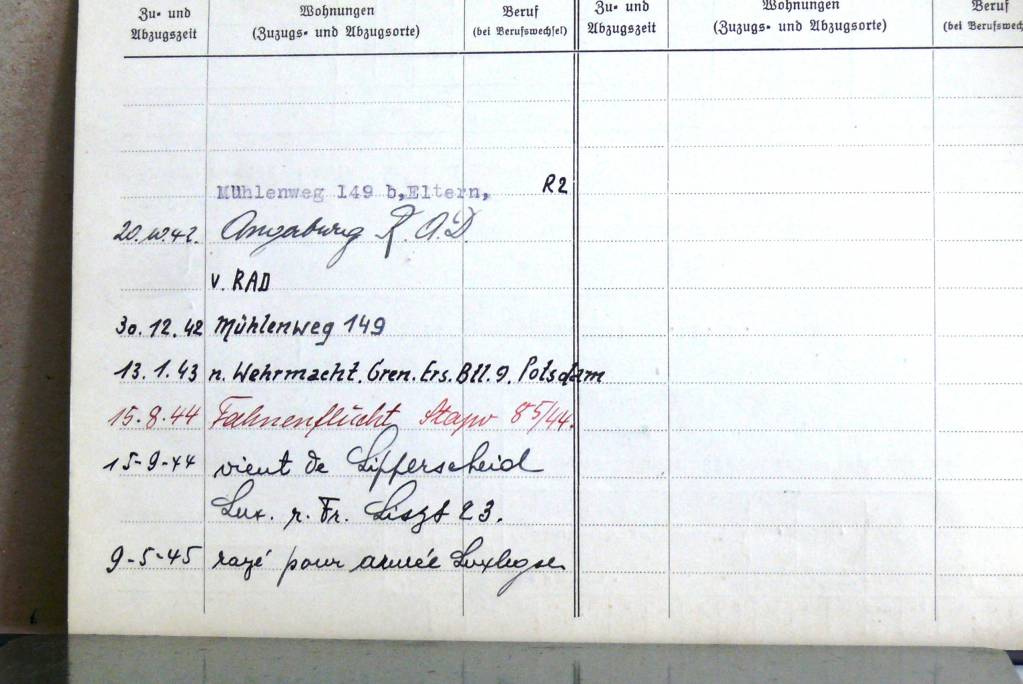 Zu- und Abzugszeit
Wohnungen
(Zuzugs- und Abzugsorte)
Beruf
(bei Berufswechsel)
Zu- und Abzugszeit
Wohnungen
(Zuzugs- und Abzugsorte)
Beruf
(bei Berufswech
Mühlenweg 149 b,Eltern, R2
20.10.42. R.A.D
v. RAD
30.12.42 Mühlenweg 149
13.1.43 n. Wehrmacht. Gren. Ers. Btl. 9. Potsdam
15.8.44 Fahnenflucht Stapo 85/44.
15-9-44 vient de Lifferscheid
Lux. r. Fr. Liszt 23.
9-5-45 rayé pour armée